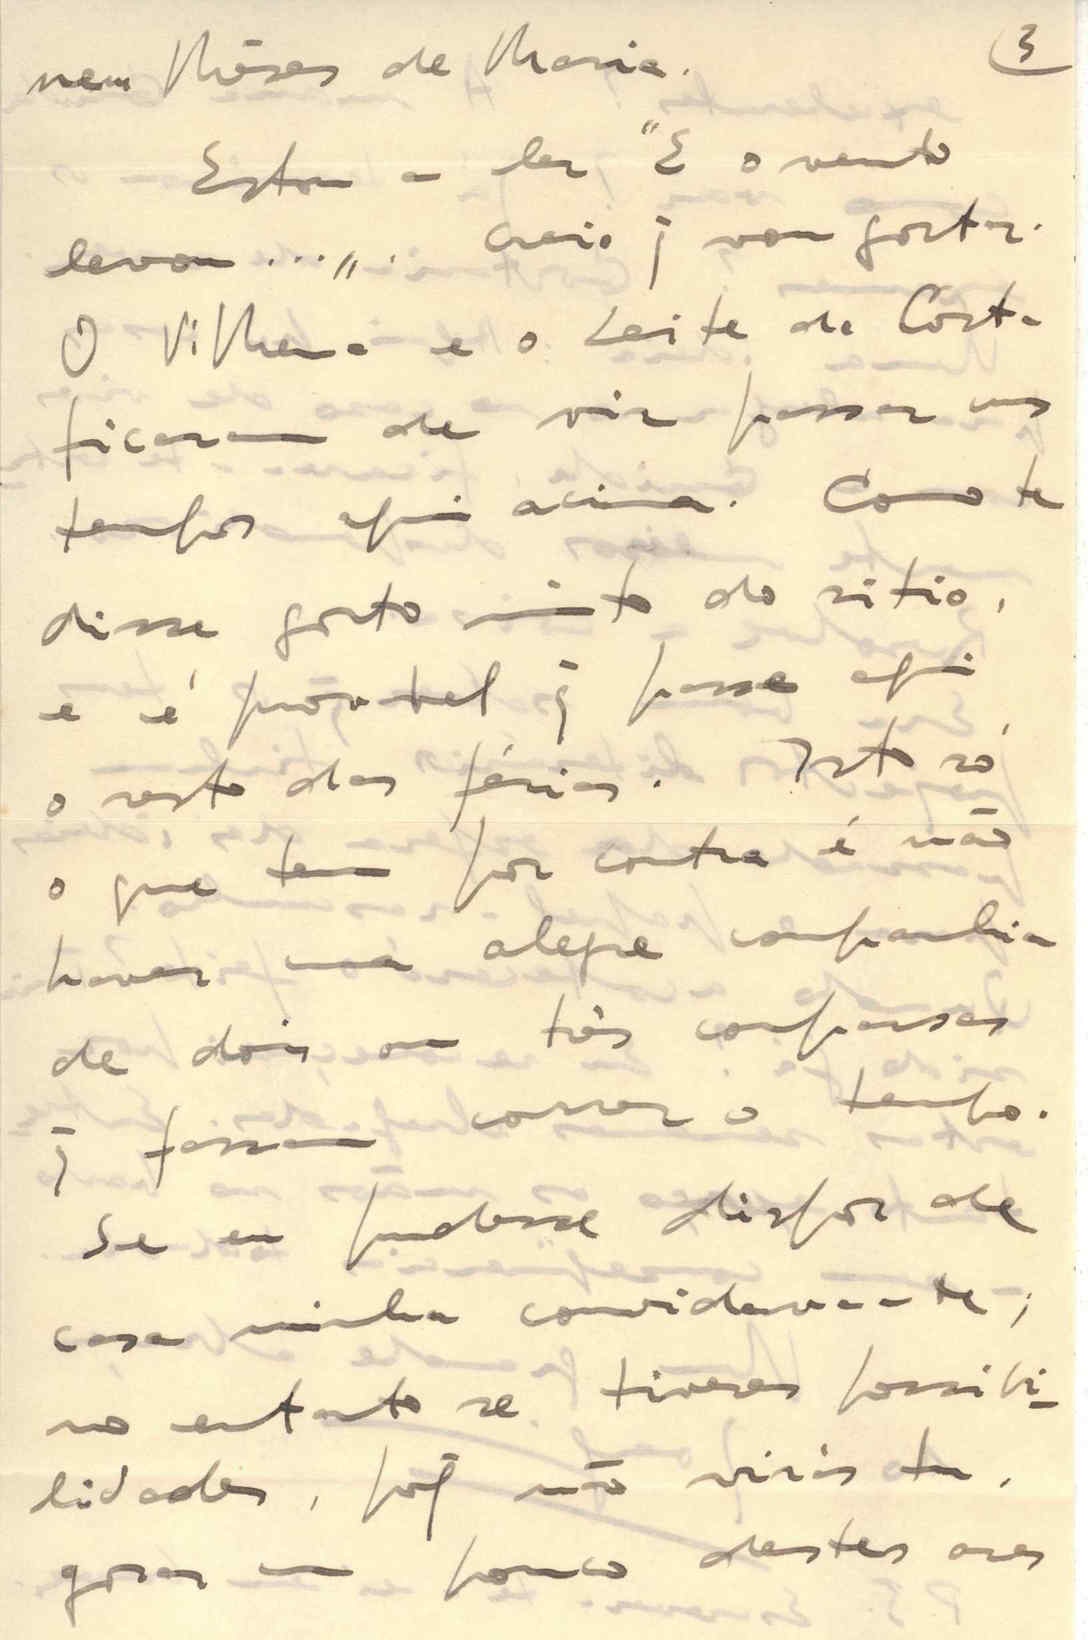 3
nem Mêses de Maria.
Estou a ler "E o vento
levou...". Creio q̃ vou gostar.
O Vilhena e o Leite da Costa
ficaram de vir passar uns
tempos aqui acima. Como te
disse gosto muito do sitio,
e é provavel q̃ passe aqui
o resto das férias. Isto só
o que tem por contra é não
haver uma alegre companhia
de dois ou três comparsas
q̃ fassam correr o tempo.
Se eu pudesse dispôr de
casa minha convidava-te;
no entanto se tiveres possibi-
lidades, porq̃ não virás tu,
gosar um pouco destes ares